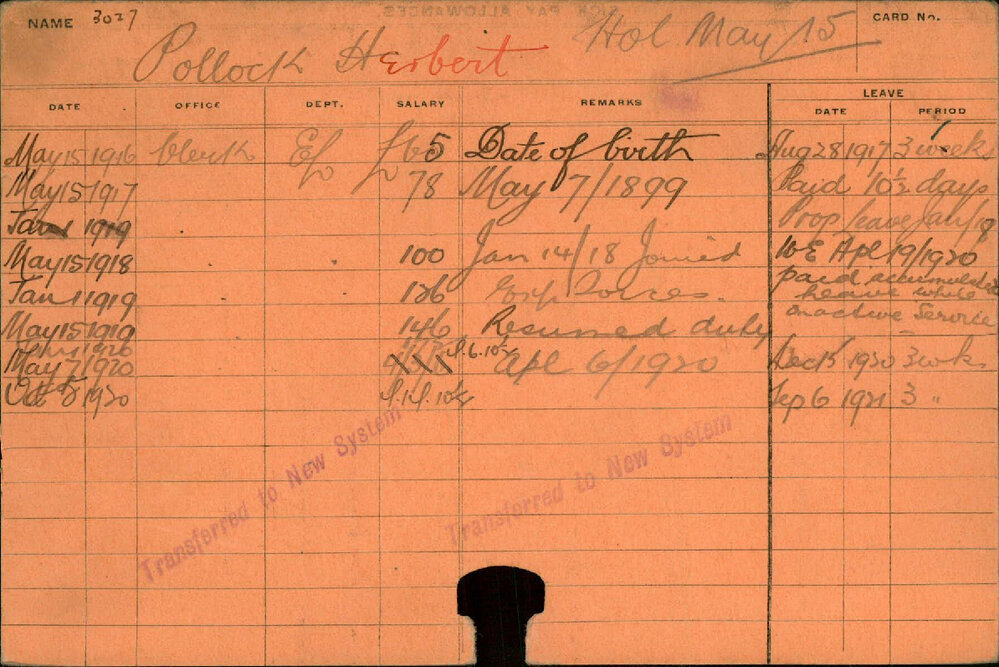 SICK PAY ALLOWANCES
NAME 3027
Pollock Herbert
Hol May 15
CARD No.
DATE OFFICE DEPT. SALARY REMARKS LEAVE
DATE PERIOD
May 15 1916 Clerk £65 Date of birth Aug 28 1917 3 weeks
May 15 1917 78 May 7/1899 Paid 10½ days
Jan 1 1919 Prop leave Jan/18
May 15 1918 100 Jan 14/18 Joined WE Apl 19/1920
Jan 1 1919 126 Exp Forces. paid accumulated
leave while
on active Service
May 15 1919 146 Resumed duty
May 7/1920 Apl 6/1920 Dec 15 1920 3 wks
Oct 1920 Sep 6 1921 3 "
Transferred to New System
Transferred to New System